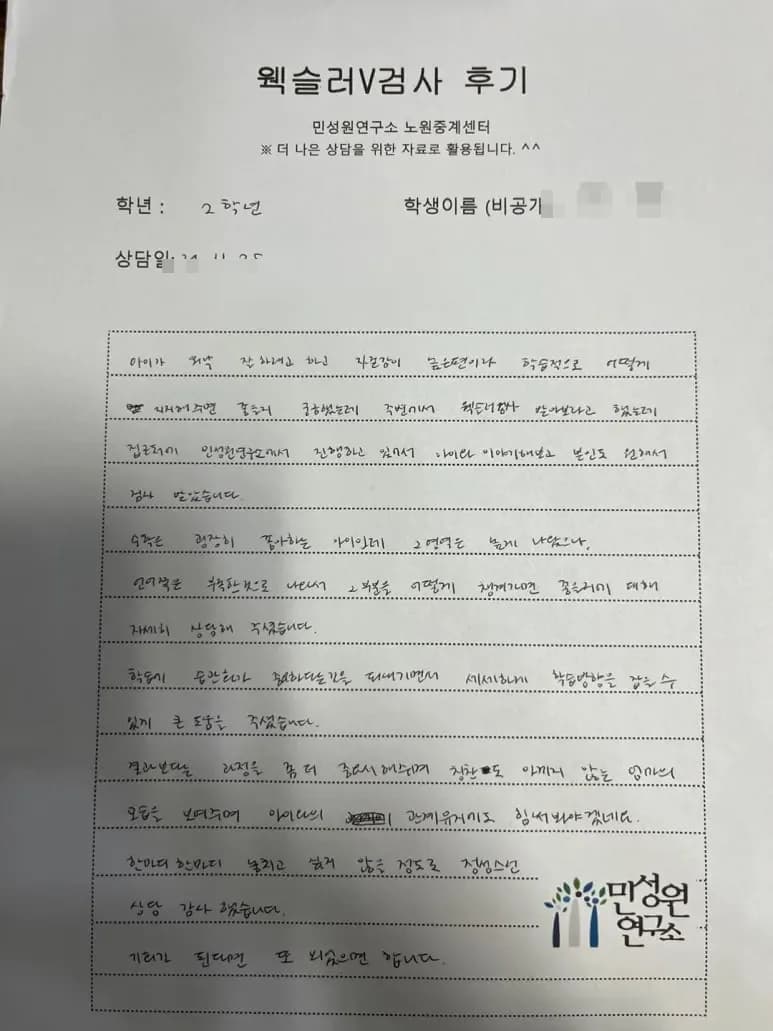 웩슬러V검사 후기
민성원연구소 노원중계센터
※ 더 나은 상담을 위한 자료로 활용됩니다. ^^
학년 : 2학년
학생이름 (비공개
상담일:
아이가 워낙 잘 하려고 하고 자존감이 높은편이라 학습적으로 어떻게
지지해주면 좋을지 궁금했는데 주변에서 웩슬러검사 받아보라고 했는데
민성원연구소에서 진행하고 있어서 아이와 이야기해보고 본인도 원해서
검사 받았습니다.
수학은 굉장히 좋아하는 아이인데 그 영역은 높게 나왔으나,
언어쪽은 부족한것으로 나와서 그 부분을 어떻게 챙겨가면 좋을지에 대해
자세히 상담해 주셨습니다.
학습의 습관화가 중요하다는것을 되새기면서 세세하게 학습방향을 잡을 수
있게 큰 도움을 주셨습니다.
결과보다는 과정을 좀 더 중요시해주며 칭찬도 아끼지 않는 엄마의
모습을 보여주며 아이와의 관계유지에도 힘써봐야겠네요.
한마디한마디 놓치고 싶지 않을 정도로 정성스런
상담 감사했습니다.
기회가 된다면 또 뵈었으면 합니다.
민성원
연구소